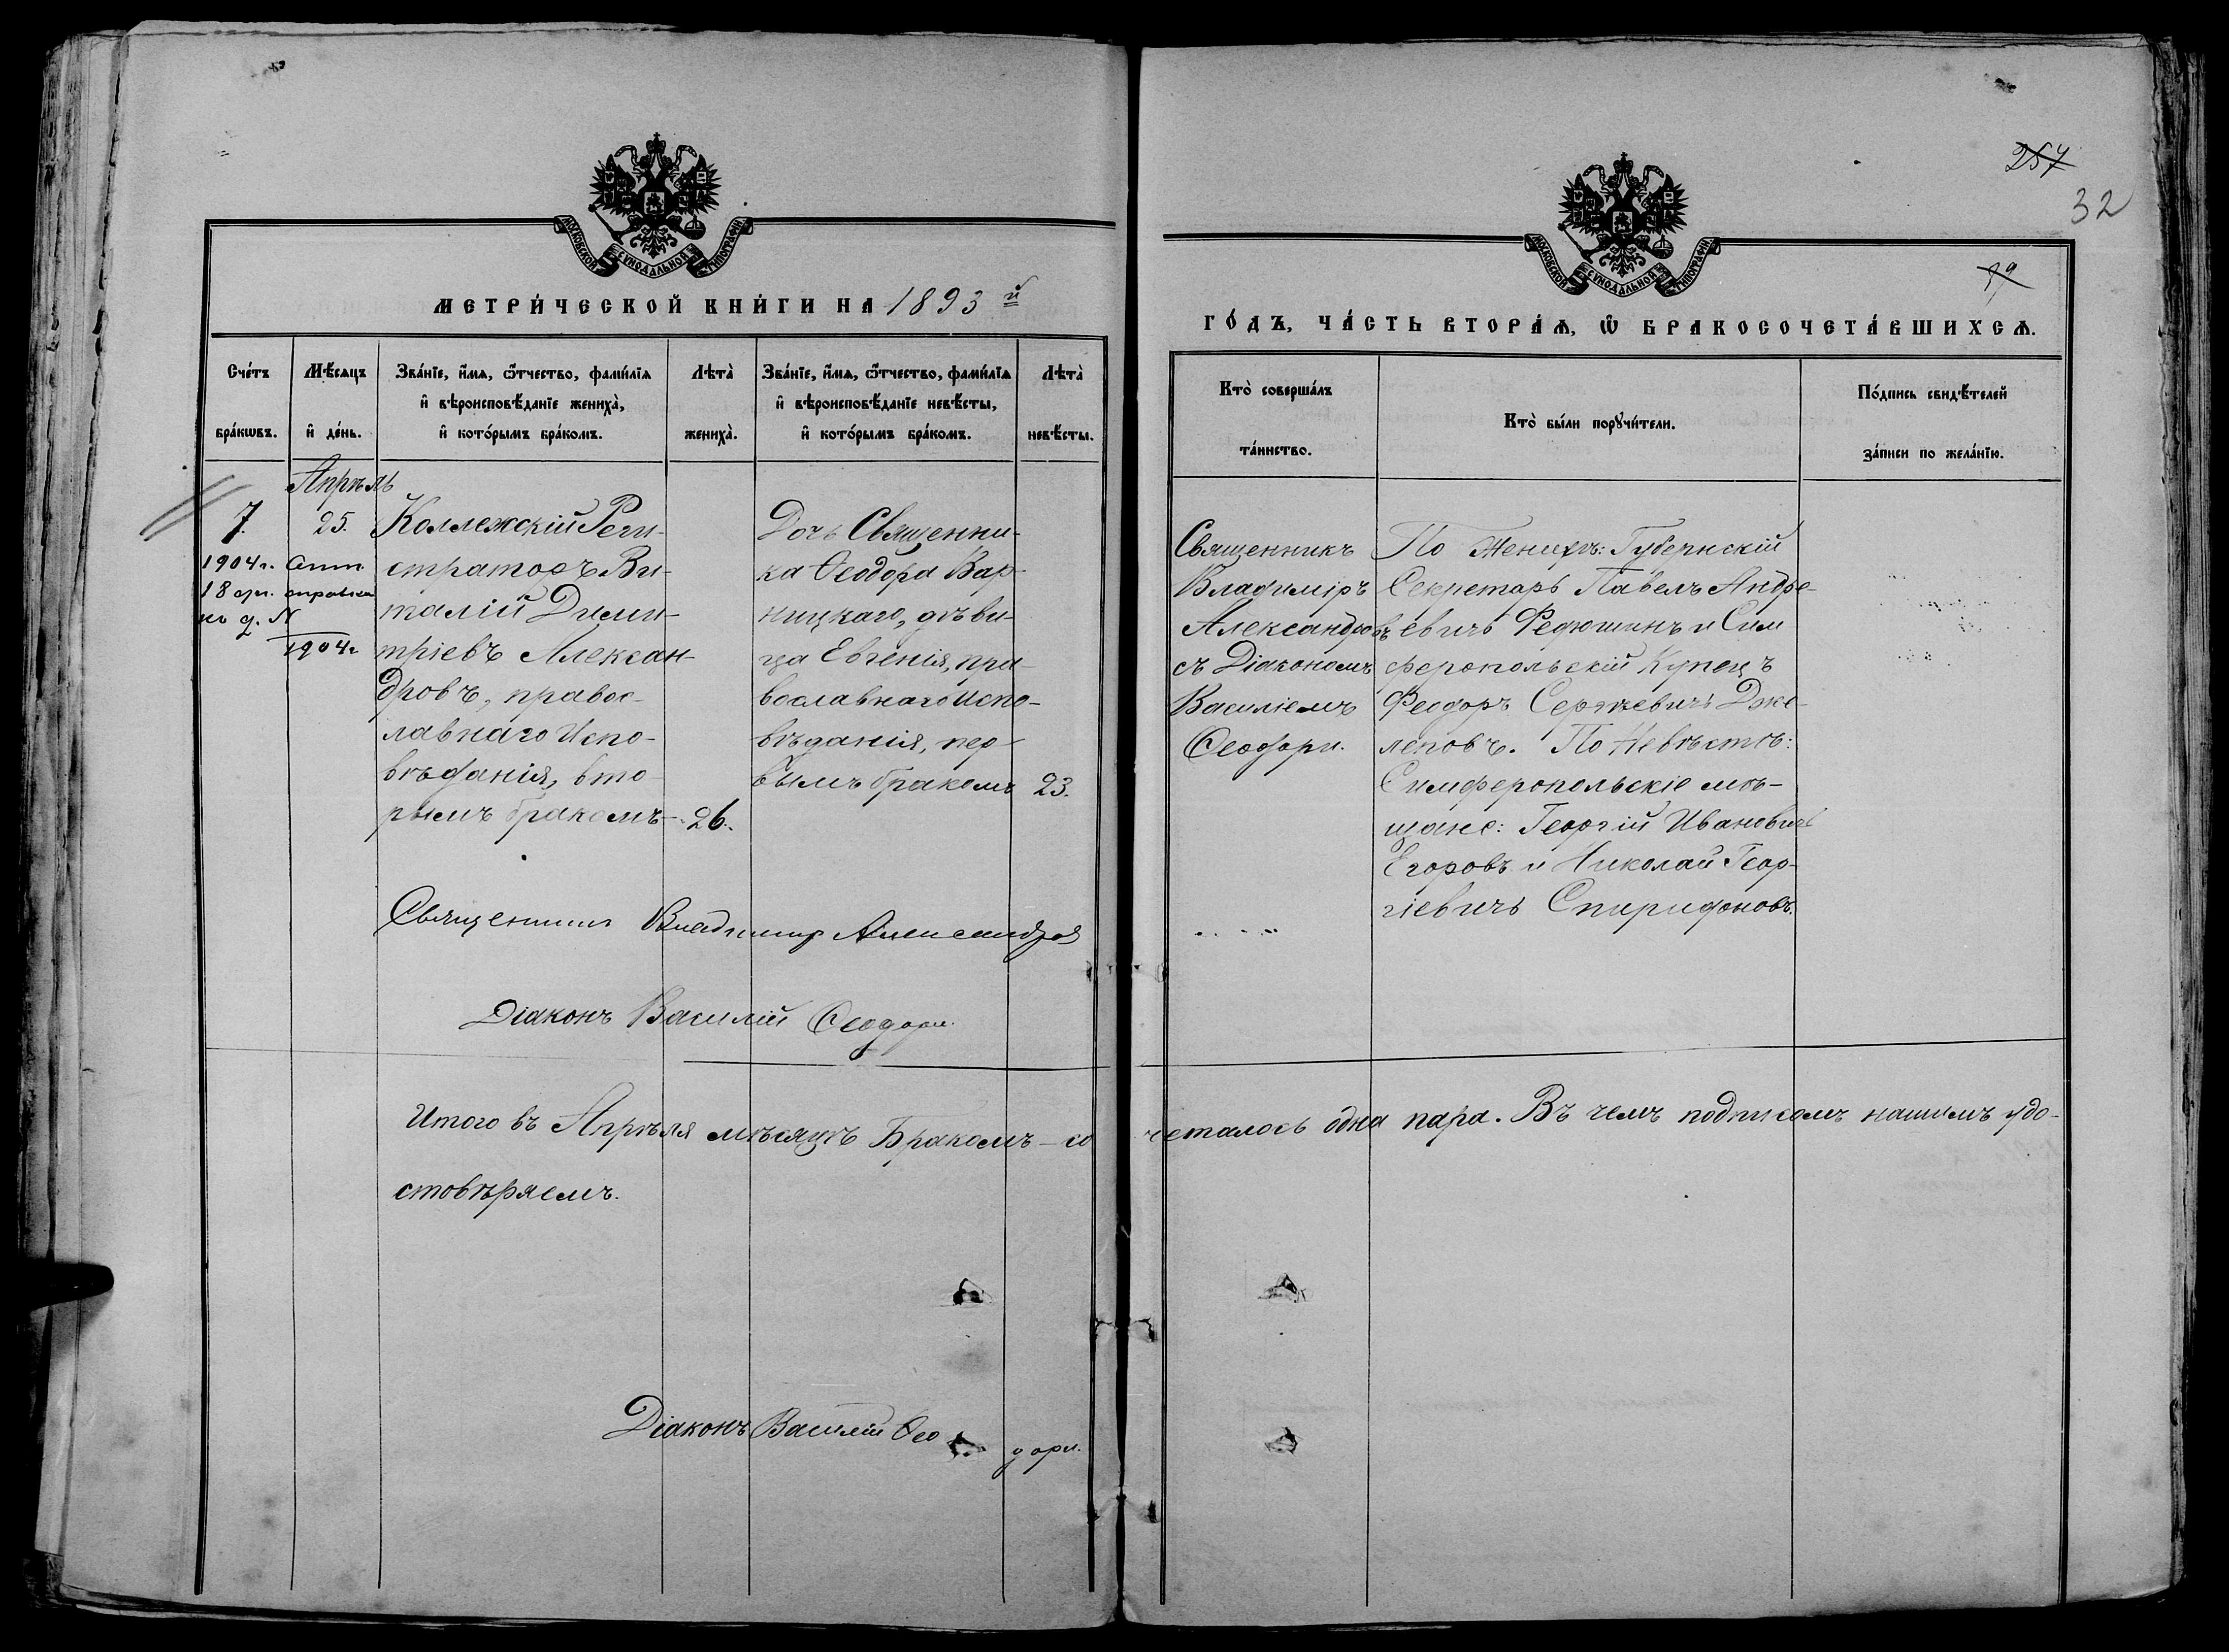 257
32
МОСКОВСКОЙ СѴНОДАЛЬНОЙ ТИПОГРАФІИ
МОСКОВСКОЙ СѴНОДАЛЬНОЙ ТИПОГРАФІИ
МЕТРИ́ЧЕСКОЙ КНИ́ГИ НА 1893й
ГО́ДЪ, ЧА́СТЬ ВТОРА́Ѧ, Ѽ БРАКОСОЧЕТА́ВШИХСѦ.
Сче́тъ
бра́кѡвъ.
Мѣ́сѧцъ
и҆ де́нь.
Зва́нїе, и҆́мѧ, ѻ҆́тчество, фами́лїѧ
и҆ вѣроисповѣ́данїе жениха̀,
и҆ кото́рымъ бра́комъ.
Лѣта̀
жениха̀.
Зва́нїе, и҆́мѧ, ѻ҆́тчество, фами́лїѧ
и҆ вѣроисповѣ́данїе невѣ́сты,
и҆ кото́рымъ бра́комъ.
Лѣта̀
невѣ́сты.
Кто̀ соверша́лъ
та́инство.
Кто̀ бы́ли порꙋчи́тели.
По́дпись свидѣ́телей
за́писи по жела́нїю.
Апрѣль
7.
25.
1904г.
18
справка
к д. N
1904г
Коллежскій Реги-
страторъ Ви-
талій Дими-
тріевъ Алексан-
дровъ, правос-
лавнаго Испо-
вѣданія, вто-
рымъ бракомъ
26.
Дочь Священни-
ка Ѳеодора Вар-
ницкаго, дѣви-
ца Евгенія, пра-
вославнаго Испо-
вѣданія, пер-
вымъ бракомъ
23.
Священникъ
Владиміръ
Александровъ
съ Діакономъ
Василіемъ
Ѳеодори.
По Женихѣ: Губернскій
Секретарь Павелъ Андре-
евичъ Федюшинъ и Сим
феропольскій Купецъ
Феодоръ Сергѣевичъ Дже-
леповъ. По Невѣстѣ:
Симферопольскіе мѣ-
щане: Георгій Ивановичъ
Егоровъ и Николай Геор-
гіевичъ Спиридоновъ.
Священникъ Владимир Александров
Діаконъ Василій Ѳеодори.
Итого въ Апрѣля мѣсяцѣ Бракомъ-со четалось одна пара. Въ чемъ подписомъ нашимъ удо-
стовѣряемъ.
Діаконъ Василій Ѳео дори.